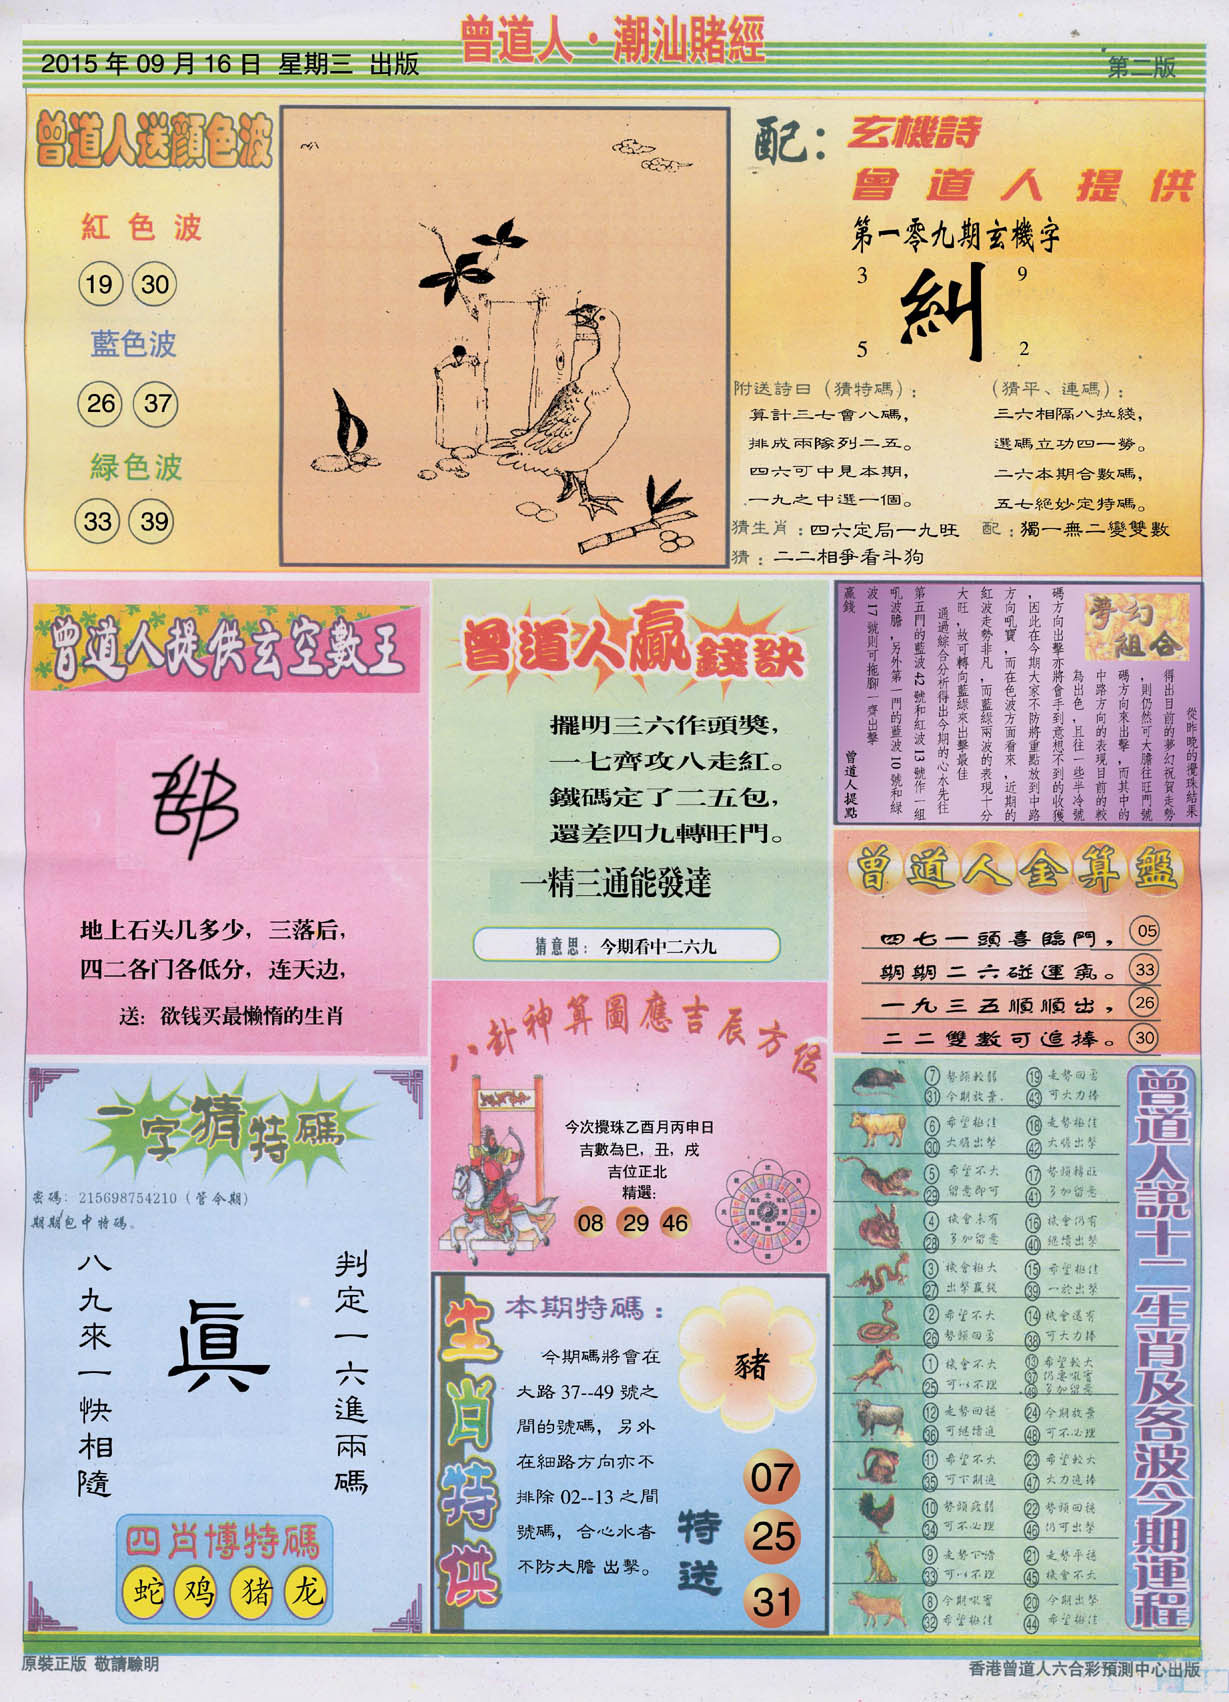 曾道人·潮汕賭經
2015年09月16日 星期三 出版
第二版
曾道人送顔色波
紅色波
19 30
藍色波
26 37
緑色波
33 39
配：玄機詩
曾道人提供
第一零九期玄機字
3 9
糾
5 2
附送詩日（猜特碼）：
算計三七會八碼，
排成兩隊列二五。
四六可中見本期，
一九之中選一個。
（猜平、連碼）：
三六相隔八拉綫，
選碼立功四一勞。
二六本期合數碼，
五七絕妙定特碼。
猜生肖：四六定局一九旺 配：獨一無二變雙數
猜：二二相爭看斗狗
曾道人提供玄空數王
地上石头几多少，三落后，
四二各门各低分，连天边，
送：欲钱买最懒惰的生肖
曾道人贏錢訣
擺明三六作頭獎，
一七齊攻八走紅。
鐵碼定了二五包，
還差四九轉旺門。
一精三通能發達
猜意思：今期看中二六九
夢幻組合
從昨晚的攪珠結果
得出目前的夢幻祝賀走勢
，則仍然可大膽往旺門號
碼方向來出擊，而其中的
中路方向的表現目前的較
為出色，且往一些半冷號
碼方向出擊亦將會手到意想不到的收獲
，因此在今期大家不防將重點放到中路
方向吼寶，而在色波方面看來，近期的
紅波走勢非凡，而藍綠兩波的表現十分
大旺，故可轉向藍綠來出擊最佳
通過綜合分析得出今期的心水先往
第五門的藍波42號和紅波13號作一組
吼波膽，另外第一門的藍波10號和綠
波17號則可拖腳一齊出擊
贏錢
曾道人提點
曾道人金算盤
四七一頭喜臨門， 05
期期二六碰運氣。 33
一九三五順順出， 26
二二雙數可追捧。 30
八卦神算圖應吉辰方位
今次攪珠乙酉月丙申日
吉數為巳，丑，戌
吉位正北
精選：
08 29 46
一字猜特碼
密碼：215698754210（管令期）
期期包中特碼。
判定一六進兩碼
眞
八九來一快相隨
四肖博特碼
蛇 鸡 猪 龙
生肖特供
本期特碼：
今期碼將會在
大路37--49號之
間的號碼，另外
在細路方向亦不
排除02--13之間
號碼，合心水者
不防大膽出擊。
豬
特送
07
25
31
曾道人說十二生肖及各波今期運程
7 勢頭較弱 19 走勢回勇
31 今期放棄 43 可大力捧
6 希望極佳 18 走勢極佳
30 大膽出擊 42 大膽出擊
5 希望不大 17 勢頭轉旺
29 留意即可 41 多加留意
4 機會未有 16 機會仍有
28 多加留意 40 繼續出擊
3 機會極大 15 希望極佳
27 出擊贏錢 39 一於出擊
2 希望不大 14 機會還有
26 勢頭回勇 38 可大力捧
1 機會不大 13 希望較大
25 可以不理 37 仍要吼實
49 多加留意
12 走勢回穩 24 今期放棄
36 可繼續追 48 可不必理
11 希望不大 23 希望較大
35 可下期追 47 大力追捧
10 勢頭疲弱 22 勢頭回穩
34 可不必理 46 仍可出擊
9 走勢下滑 21 走勢平穩
33 可以不理 45 機會不大
8 今期吼實 20 今期出擊
32 希望極佳 44 希望極佳
原裝正版 敬請驗明
香港曾道人六合彩預測中心出版